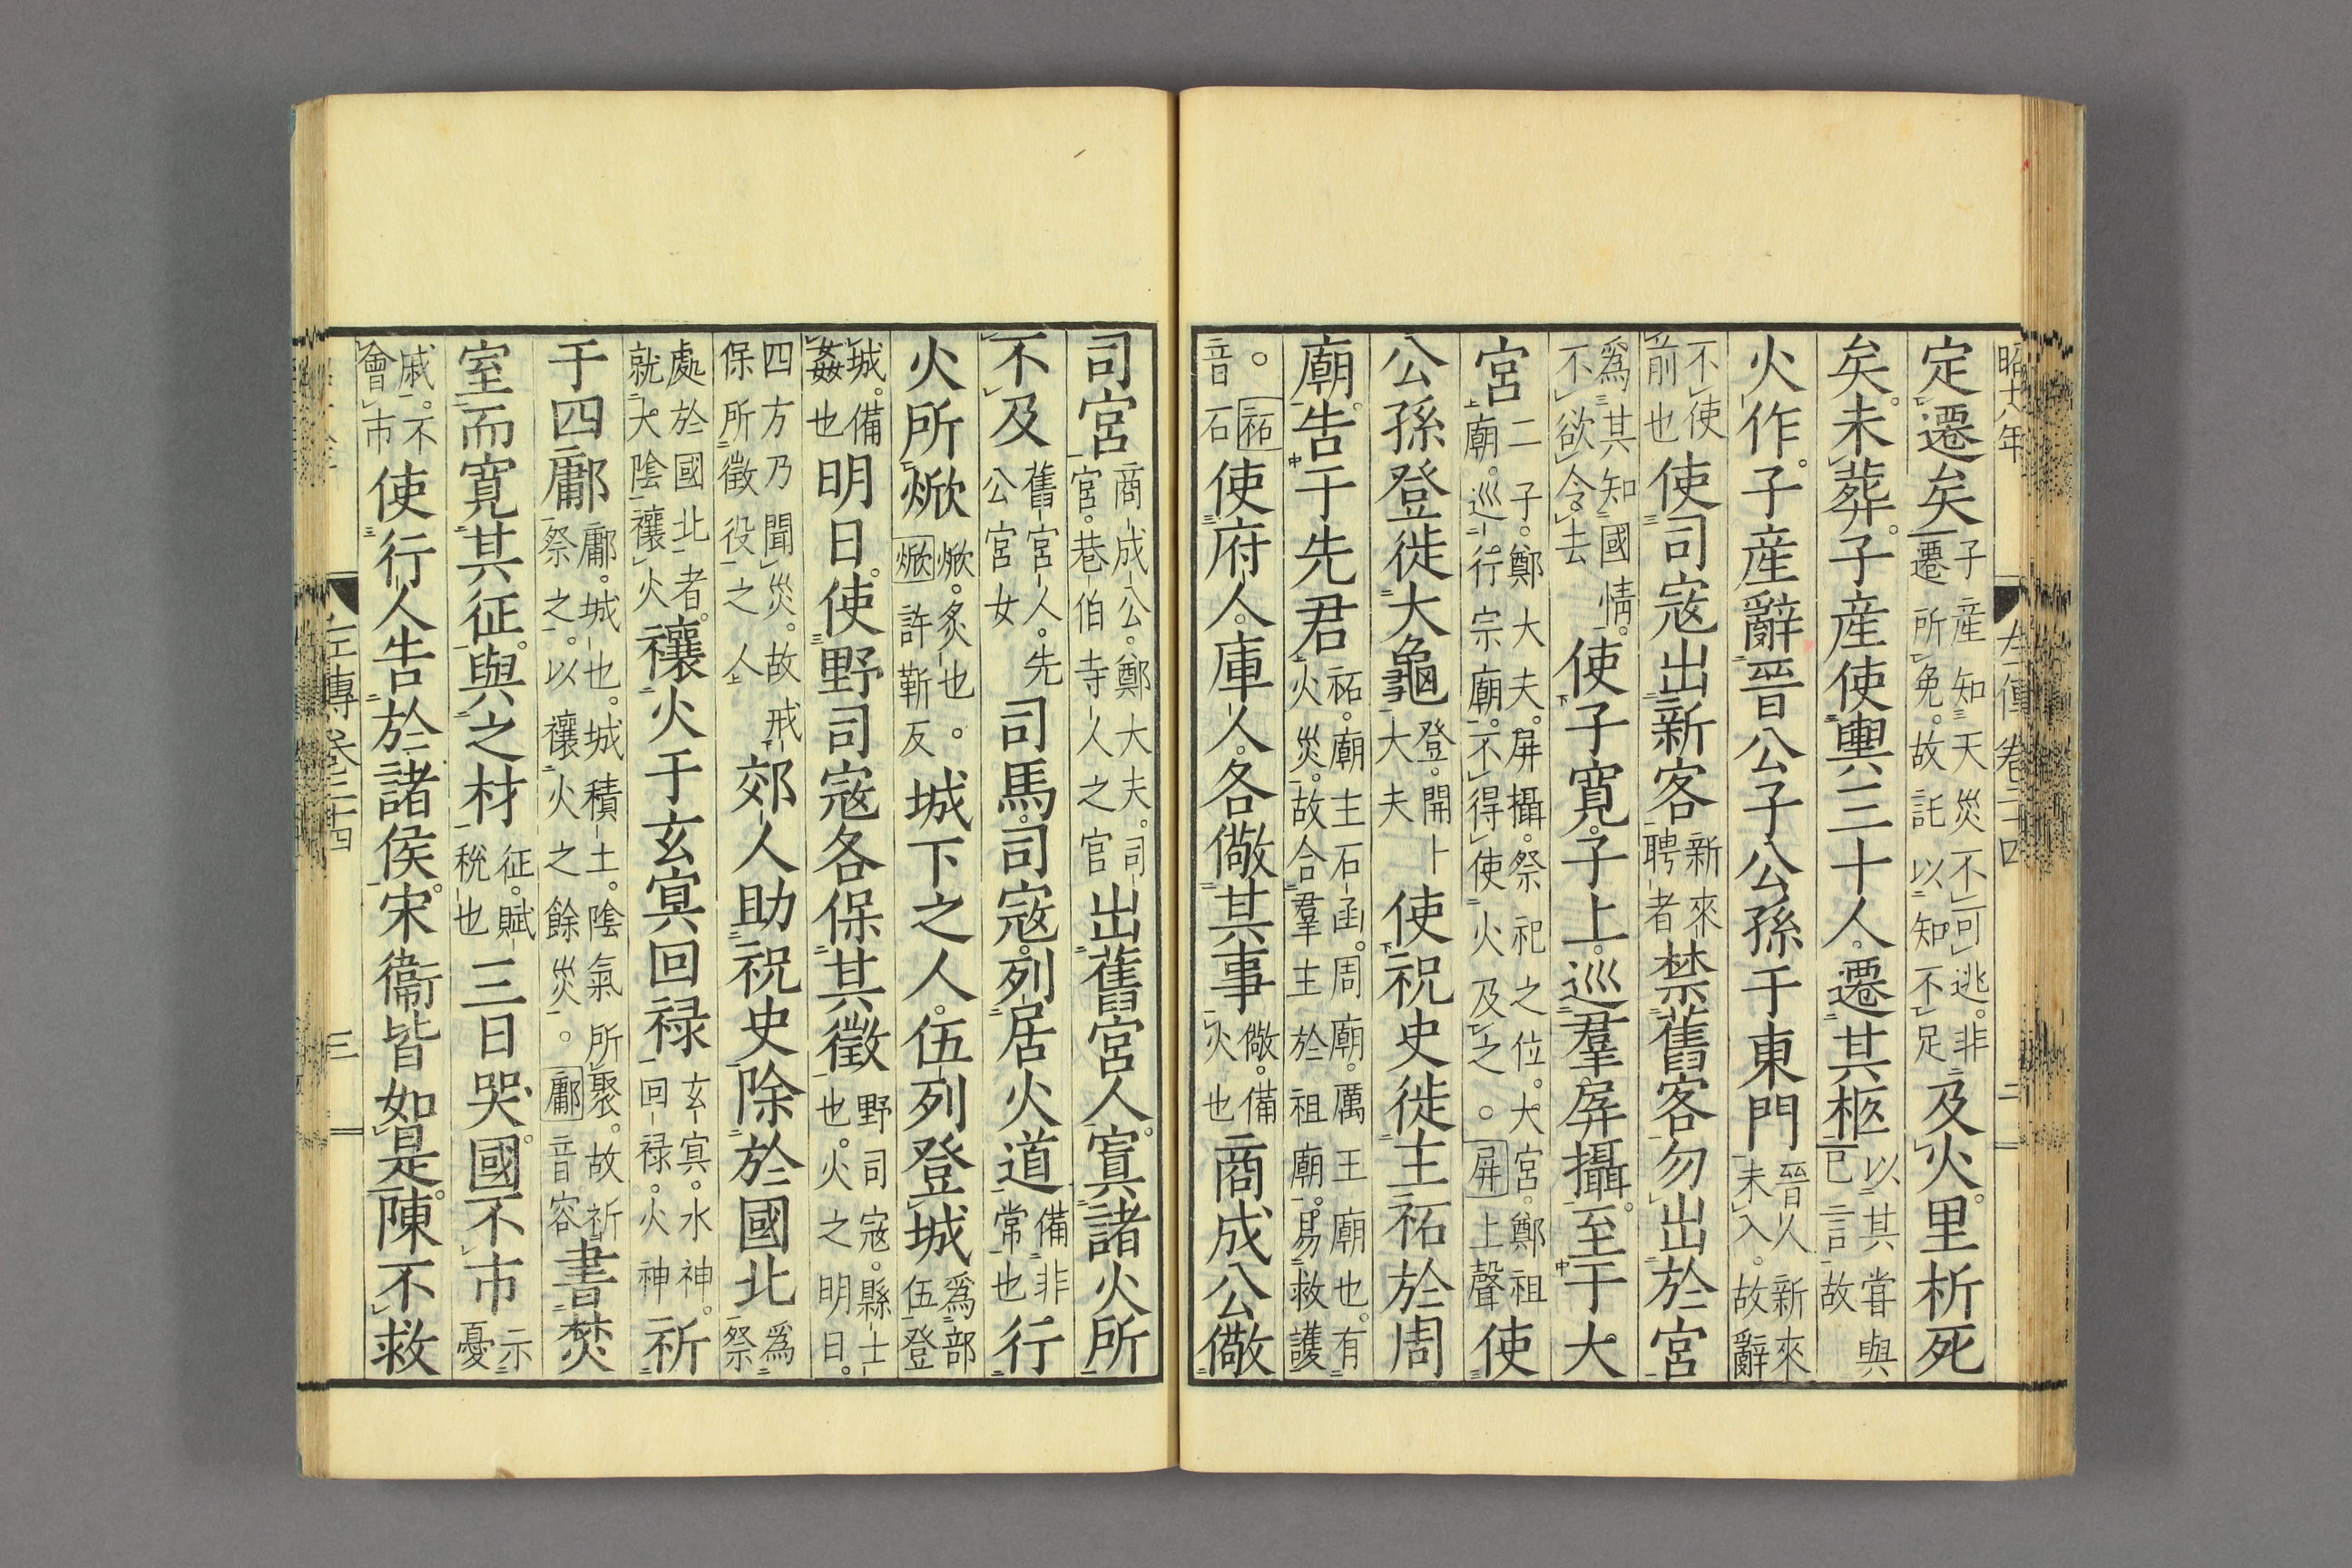 昭十八年　左傳卷二十四　二
定遷矣子産知天災不可逃。非遷所免。故託以知不足及火。里析死
矣。未葬。子産使輿三十人。遷其柩以其嘗與已言故
火作。子産辭晉公子公孫于東門晉人新來未入。故辭
不使前也使司寇出新客新來聘者禁舊客勿出於宮
爲其知國情。不欲令去使子寬。子上。巡羣屏攝。至于大
宮二子。鄭大夫。屏攝。祭祀之位。大宮。鄭祖廟。巡行宗廟。不得使火及之。屏上聲使
公孫登徙大龜登。開卜大夫使祝史徙主祏於周
廟。告于先君祏。廟主石函。周廟。厲王廟也。有火災。故合羣主於祖廟。易救護
。祏音石使府人。庫人。各儆其事儆。備火也商成公儆
司宮商成公。鄭大夫。司宮。巷伯寺人之官出舊宮人。寘諸火所
不及舊宮人。先公宮女司馬。司寇。列居火道備非常也行
火所焮焮。炙也。焮許靳反城下之人。伍列登城爲部伍登
城。備姦也明日。使野司寇各保其徵野司寇。縣士也。火之明日。
四方乃聞災。故戒保所徵役之人郊人助祝史除於國北爲祭
處於國北者。就大陰禳火禳火于玄冥回禄玄冥。水神。回禄。火神祈
于四鄘鄘。城也。城積土。陰氣所聚。故祈祭之。以禳火之餘災。鄘音容書焚
室而寬其征。與之材征。賦稅也三日哭。國不市示憂
戚。不會市使行人告於諸侯。宋衞皆如是。陳不救
左傳卷二十四　三